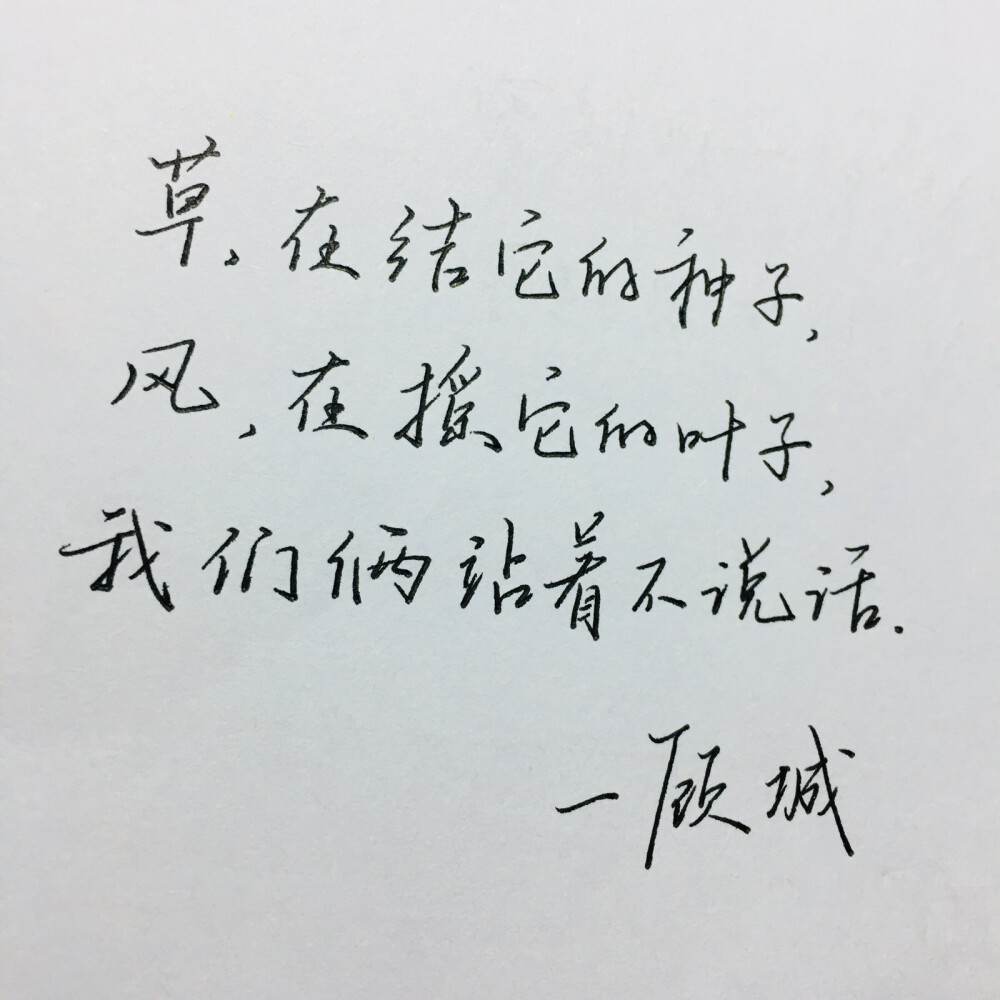 草、在结它的种子,
风,在摇它的叶子,
我们俩站着不说话.
一顾城